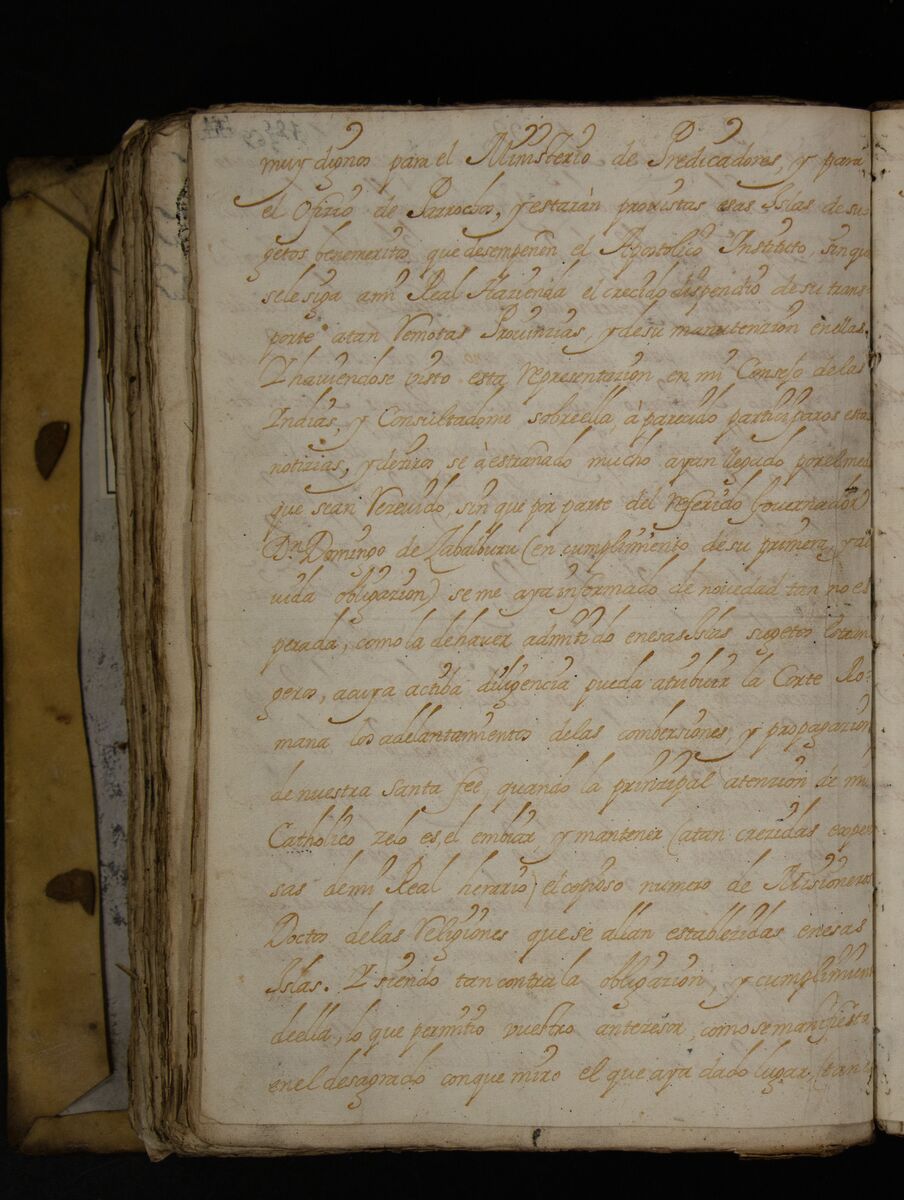 muy dignos para el Ministerio de Predicadores, y para
el Ofizio de Parrocos, y estaràn prouistas esas Islas de su-
getos benemeritos que desempeñen el Apostolico Instituto, sin que
sele siga ami Real Hazienda el crecido dispendio de su trans-
porte, atan remotas Prouinzias, y desu manutenzion enellas.
Y hauiendose visto esta representazion en mi Consejo delas
Indias, y Consultadome sobreella, à parecido participaros estas
notizias, y deziros se à estrañado mucho ayan llegado porelmedio
que sean rezeuido, sin que por parte del referido Gouernador
Dn. Domingo de Zabalburu (en cumplimiento de su primera, y de
uida obligazion) se me aya informado de nouedad tan no es
perada, como la dehauer admitido enesas Islas sugetos Estran
geros, acuya actiba diligencia pueda atribuir la Corte Ro-
mana los adelantamientos delas combersiones, y propagazion
de nuestra Santa fee, quando la prinzipal atencion de mi
Catholico zelo es, el embiar, y mantener (atan crezidas expen
sas demi Real herario) el copioso numero de Misioneros
Doctos delas Religiones que se allan establezidas enesas
Islas. Y siendo tan contra la obligazion, y cumplimiento
deella, lo que permitio vuestro antezesor, como se manifiesta
enel desagrado conque miro el que aya dado lugar,